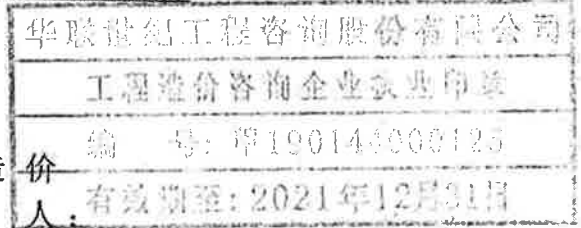 华联世纪工程咨询股份有限公司
工程造价咨询企业执业印章
编 号: 甲190144000125
价
有效期至: 2021年12月31日
人: